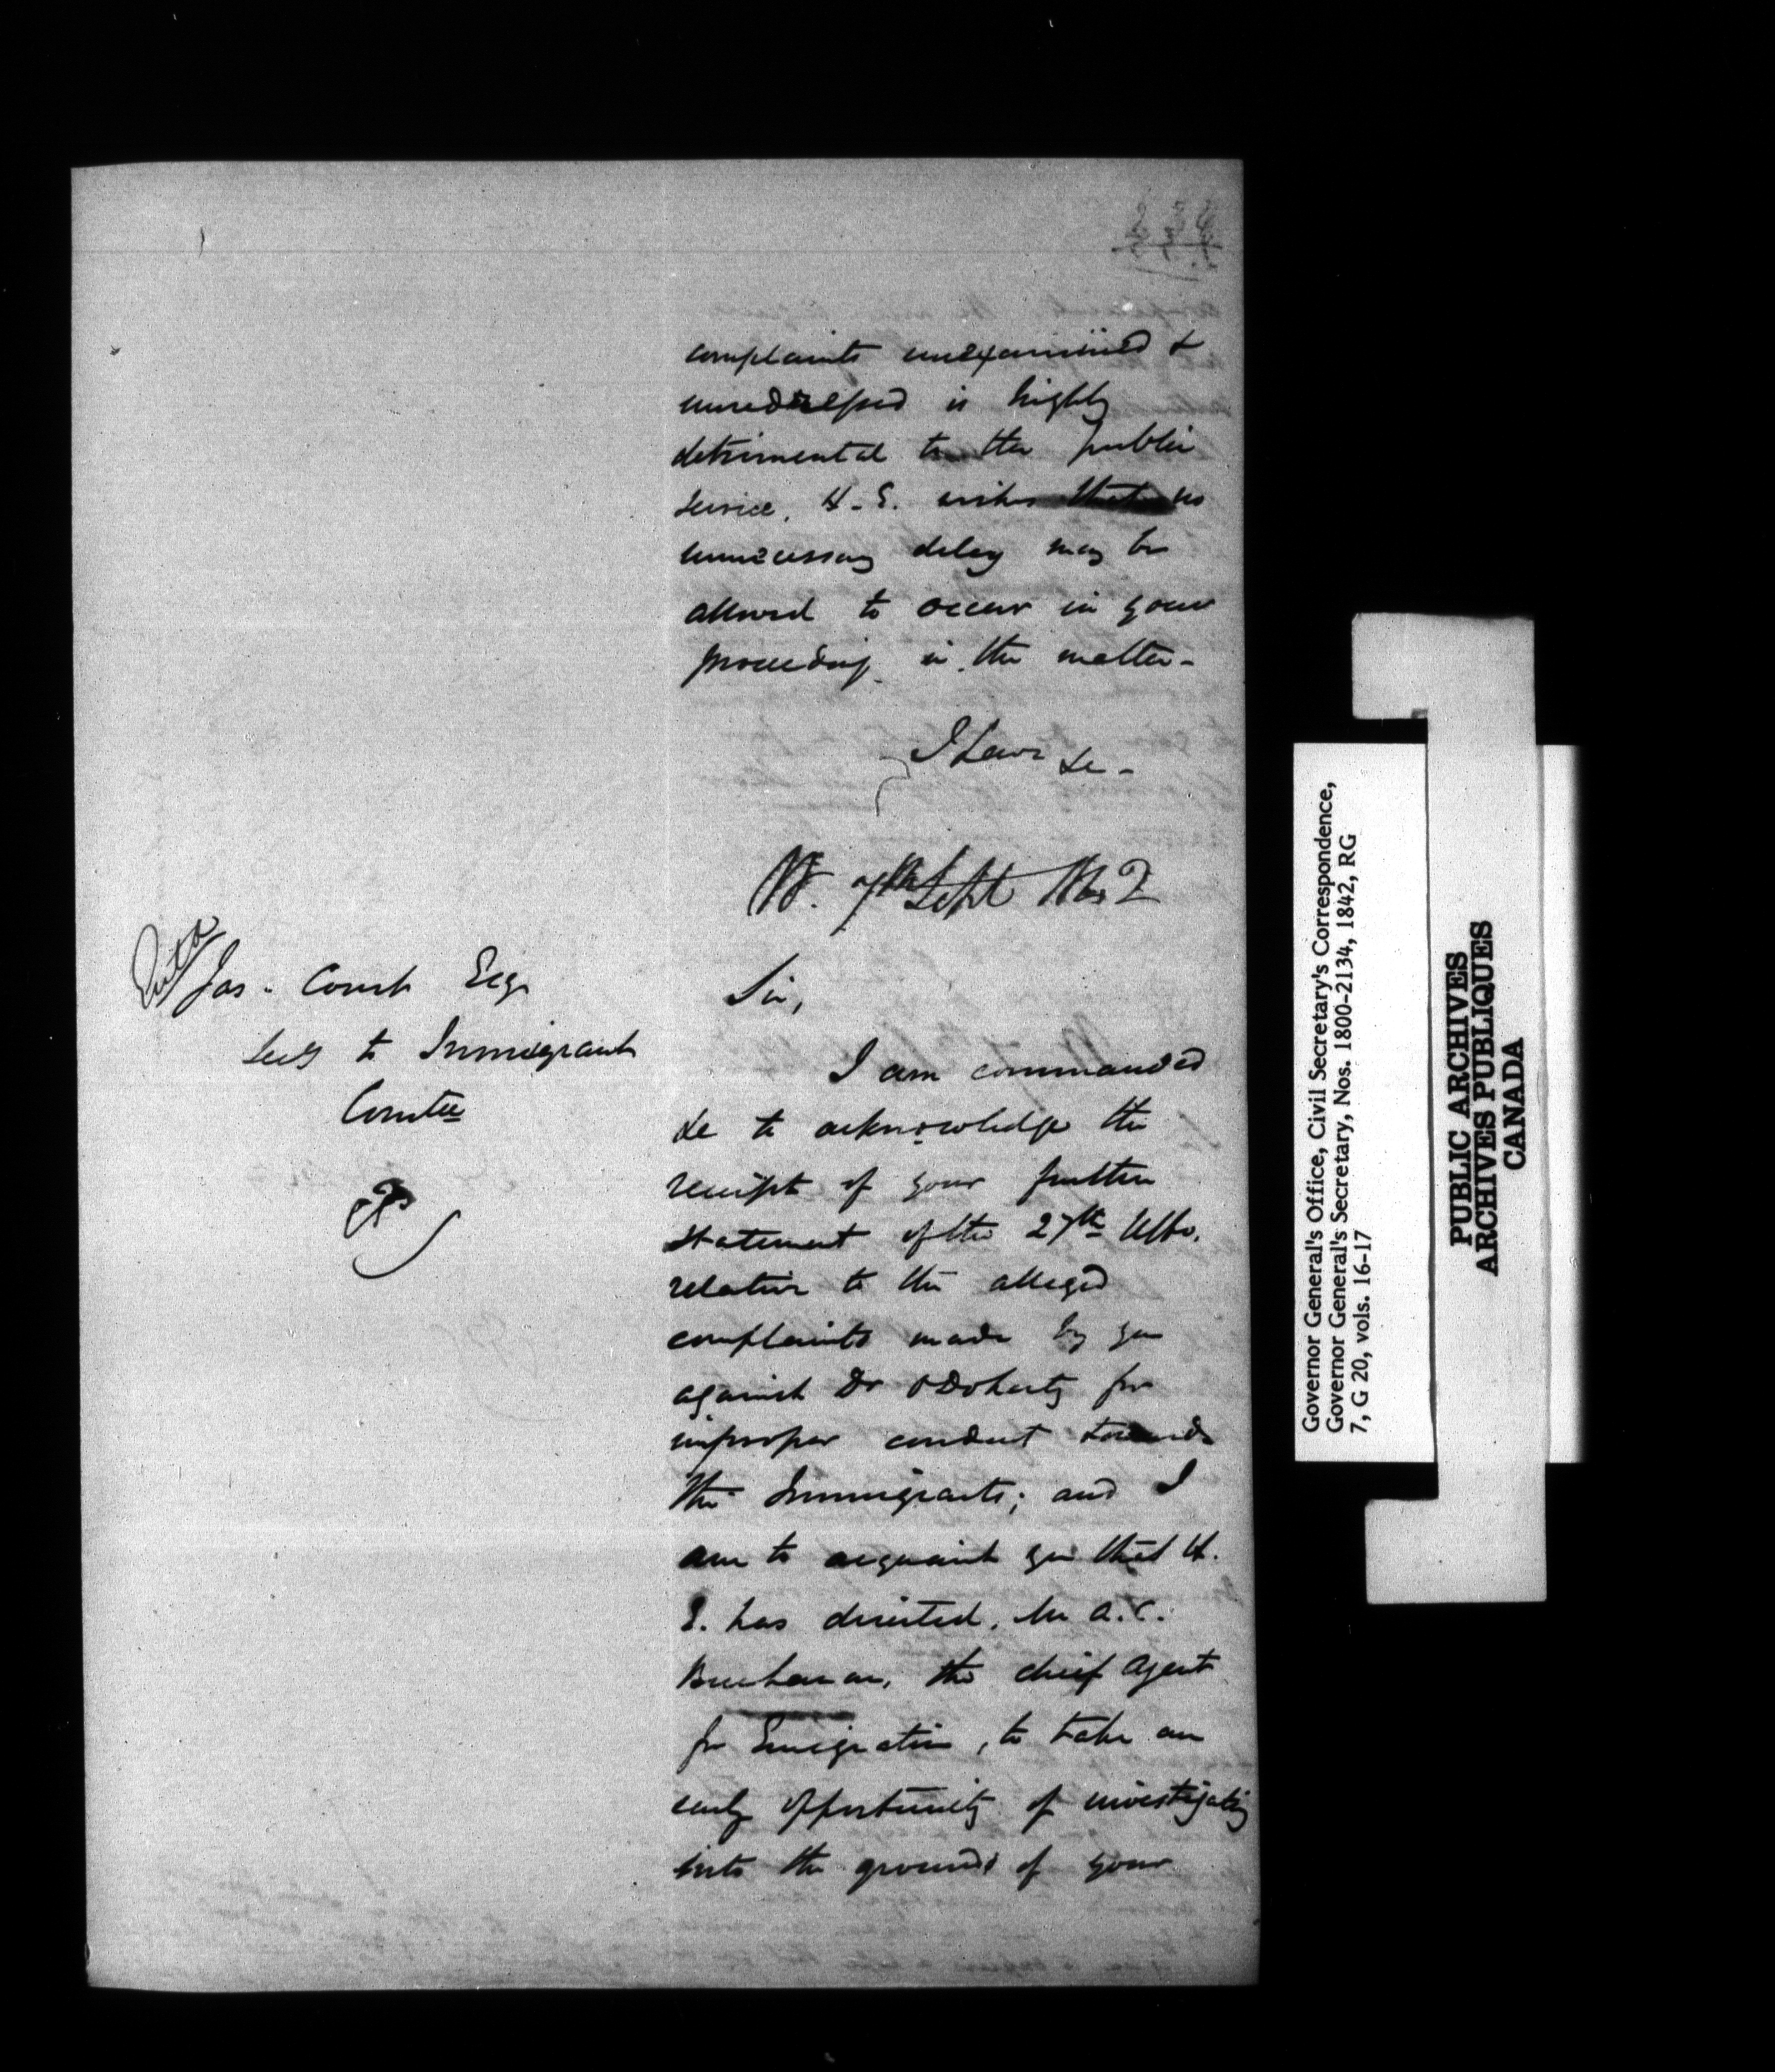 complaints unexamined &
unredressed is highly
detrimental to the public
service, H. E. wishes that no
unnecessary delay may be
allowed to occur in your
proceedings in the matter -
I have &c -
7th Sept
Jas. Court Esqr
Secy to Immigrant
Comtee
Sir,
I am commanded
&c to acknowledge the
receipt of your further
statement of the 27th Ulto.
relative to the alleged
complaints made by you
against Dr O'Doherty for
improper conduct towards
the Immigrants; and I
am to acquaint you that H.
E. has directed, Mr A. C.
Buchanan, the chief Agent
for Emigration, to take an
early opportunity of investigating
into the grounds of your
Governor General's Office, Civil Secretary's Correspondence,
Governor General's Secretary, Nos. 1800-2134, 1842, RG
7, G 20, vols. 16-17
PUBLIC ARCHIVES
ARCHIVES PUBLIQUES
CANADA